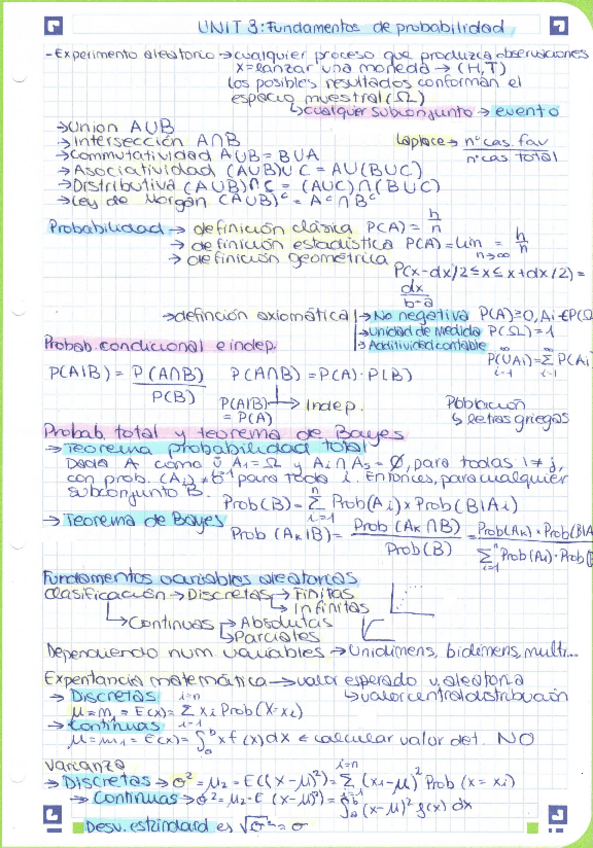 UNIT 3: Fundamentos de probabilidad
- Experimento aleatorio → cualquier proceso que produzca observaciones
x = lanzar una moneda → (H,T)
Los posibles resultados conforman el
espacio muestral (Ω)
↳ cualquier subconjunto → evento
→ Union A∪B
→ Intersección A∩B
→ Commutatividad A∪B = B∪A
→ Asociatividad (A∪B)∪C = A∪(B∪C)
→ Distributiva (A∪B)∩C = (A∪C)∩(B∪C)
→ Ley de Morgan (A∪B)ᶜ = Aᶜ∩Bᶜ
Laplace → nº cas. fav / nº cas total
Probabilidad → definición clásica P(A) = h/n
→ definición estadística P(A) = lim n→∞ = h/n
→ definición geométrica
P(x-dx/2 ≤ x ≤ x+dx/2) = dx / b-a
→ definción axiomática | → No negativa P(A)≥0, Ai ∈ P(Ω
→ Unidad de Medida P(Ω) = 1
→ Additividad contable
P(∪Ai) = Σ P(Ai
Probab. condicional e indep.
P(A|B) = P(A∩B) / P(B) P(A∩B) = P(A)·P(B)
P(A|B) = P(A) → Indep.
Población
↳ letras griegas
Probab. total y teorema de Bayes
→ Teorema probabilidad total
Dada A como ∪ Ai = Ω y Ai ∩ Aj = ∅, para todas i ≠ j,
con prob. (Ai) para todo i. Entonces, para cualquier
subconjunto B. Prob(B) = Σ Prob(Ai) × Prob(B|Ai)
→ Teorema de Bayes
Prob (Ak|B) = Prob (Ak∩B) / Prob(B) = Prob(Ak) · Prob(B|A / Σ Prob(Ai) · Prob(
Fundamentos variables aleatorias
Clasificación → Discretas → Finitas
↳ Infinitas
↳ Continuas → Absolutas
↳ Parciales
Dependiendo num. variables → Unidimens, bidimens, multi...
Expentancia matemática → valor esperado v. aleatoria
↳ valor central distribución
→ Discretas
μ = m₁ = E(x) = Σ xi Prob(X = xi)
→ Continuas
μ = m₁ = E(x) = ∫ x f(x) dx ← calcular valor det. NO
Varianza
→ Discretas → σ² = μ₂ = E((x-μ)²) = Σ (xi-μ)² Prob (x = xi)
→ Continuas → σ² = μ₂ = E (x-μ)²) = ∫ (x-μ)² f(x) dx
Desv. estándard es √σ² = σ